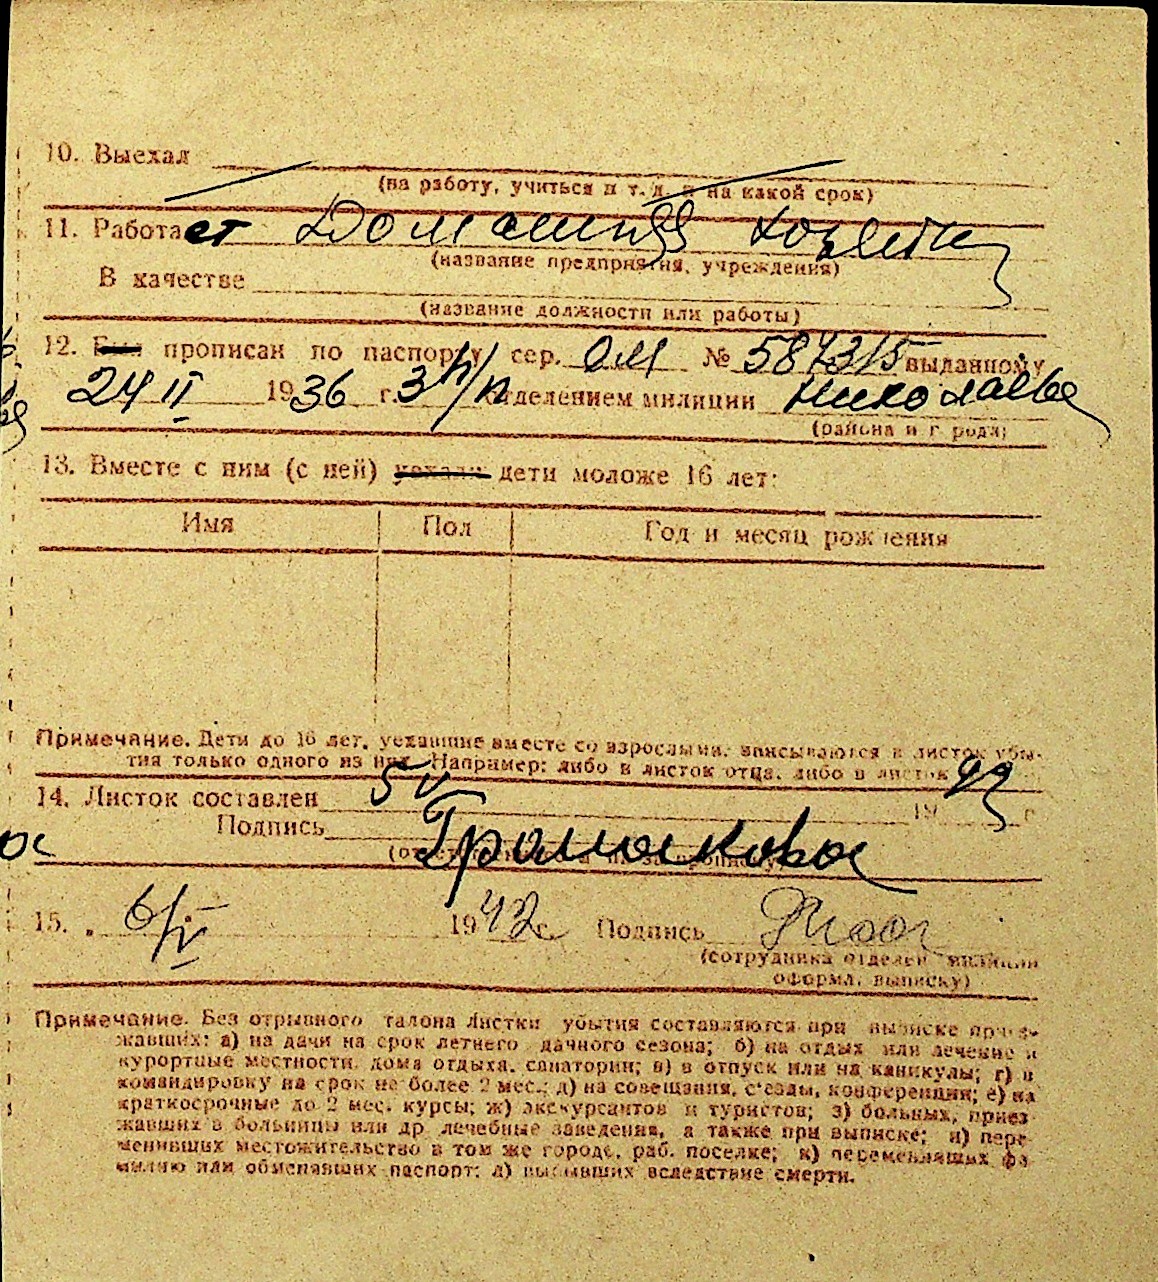 10. Выехал
(на работу, учиться и т. д. и на какой срок)
11. Работает Домашняя хозяйка
(название предприятия, учреждения)
В качестве
(название должности или работы)
12. Был прописан по паспорту сер. ОМ № 587315 выданному
24 II 1936 г. 3 отделением милиции Николаева
(района и города)
13. Вместе с ним (с ней) уехали дети моложе 16 лет:
Имя Пол Год и месяц рождения
Примечание. Дети до 16 лет, уехавшие вместе со взрослыми, вписываются в листок убы-
тия только одного из них. Например: либо в листок отца, либо в листок
14. Листок составлен 5 V 19 г
Подпись Громыковое
15. „ 6/V 1942 г. Подпись
(сотрудника отделен. милиции
оформл. выписку)
Примечание. Без отрывного талона Листки убытия составляются при выписке приез-
жавших: а) на дачи на срок летнего дачного сезона; б) на отдых или лечение в
курортные местности, дома отдыха, санатории; в) в отпуск или на каникулы; г) в
командировку на срок не более 2 мес.; д) на совещания, с'езды, конференции; е) на
краткосрочные до 2 мес. курсы; ж) экскурсантов и туристов; з) больных, приез-
жавших в больницы или др. лечебные заведения, а также при выписке; и) пере-
менивших местожительство в том же городе, раб. поселке; к) переменивших фа-
милию или обменявших паспорт; л) выбывших вследствие смерти.